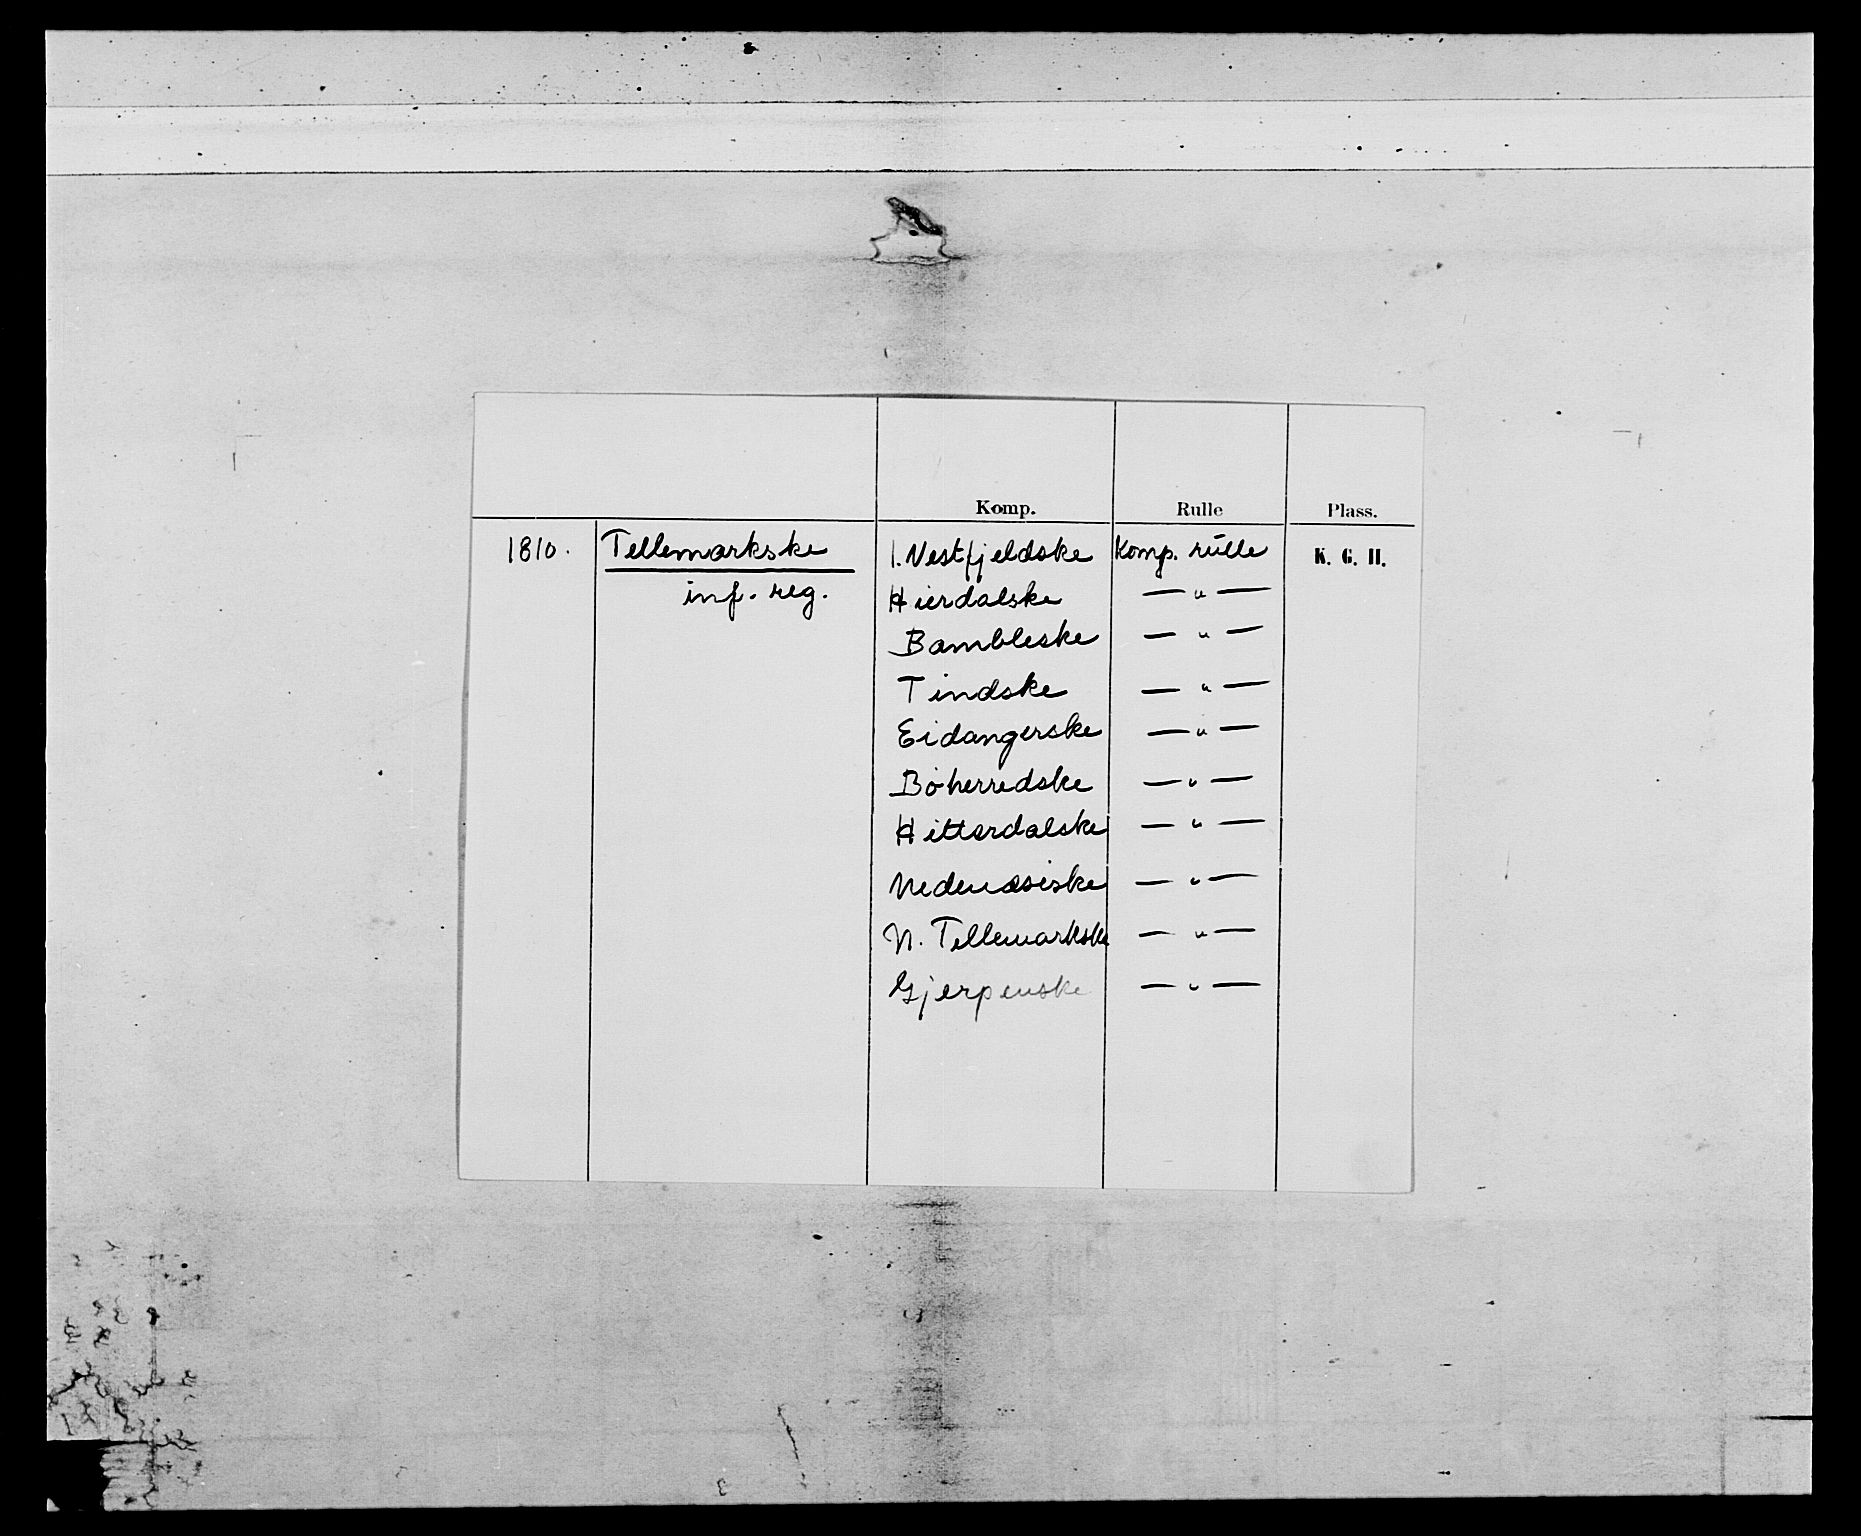 Komp. Rulle Plass.
1810. Tellemarkske 1. Vestfjeldske Komp. rulle K. G. H.
inf. reg. Hierdalske — " —
Bambleske — " —
Tindske — " —
Eidangerske — " —
Böherredske — " —
Hitterdalske — " —
Nedenæsiske — " —
N. Tellemarkske — " —
Gjerpenske — " —